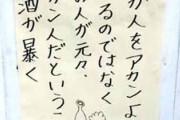 が人をアカンよ
るのではなく
人が元々、
カン人だというこ
酒が暴く